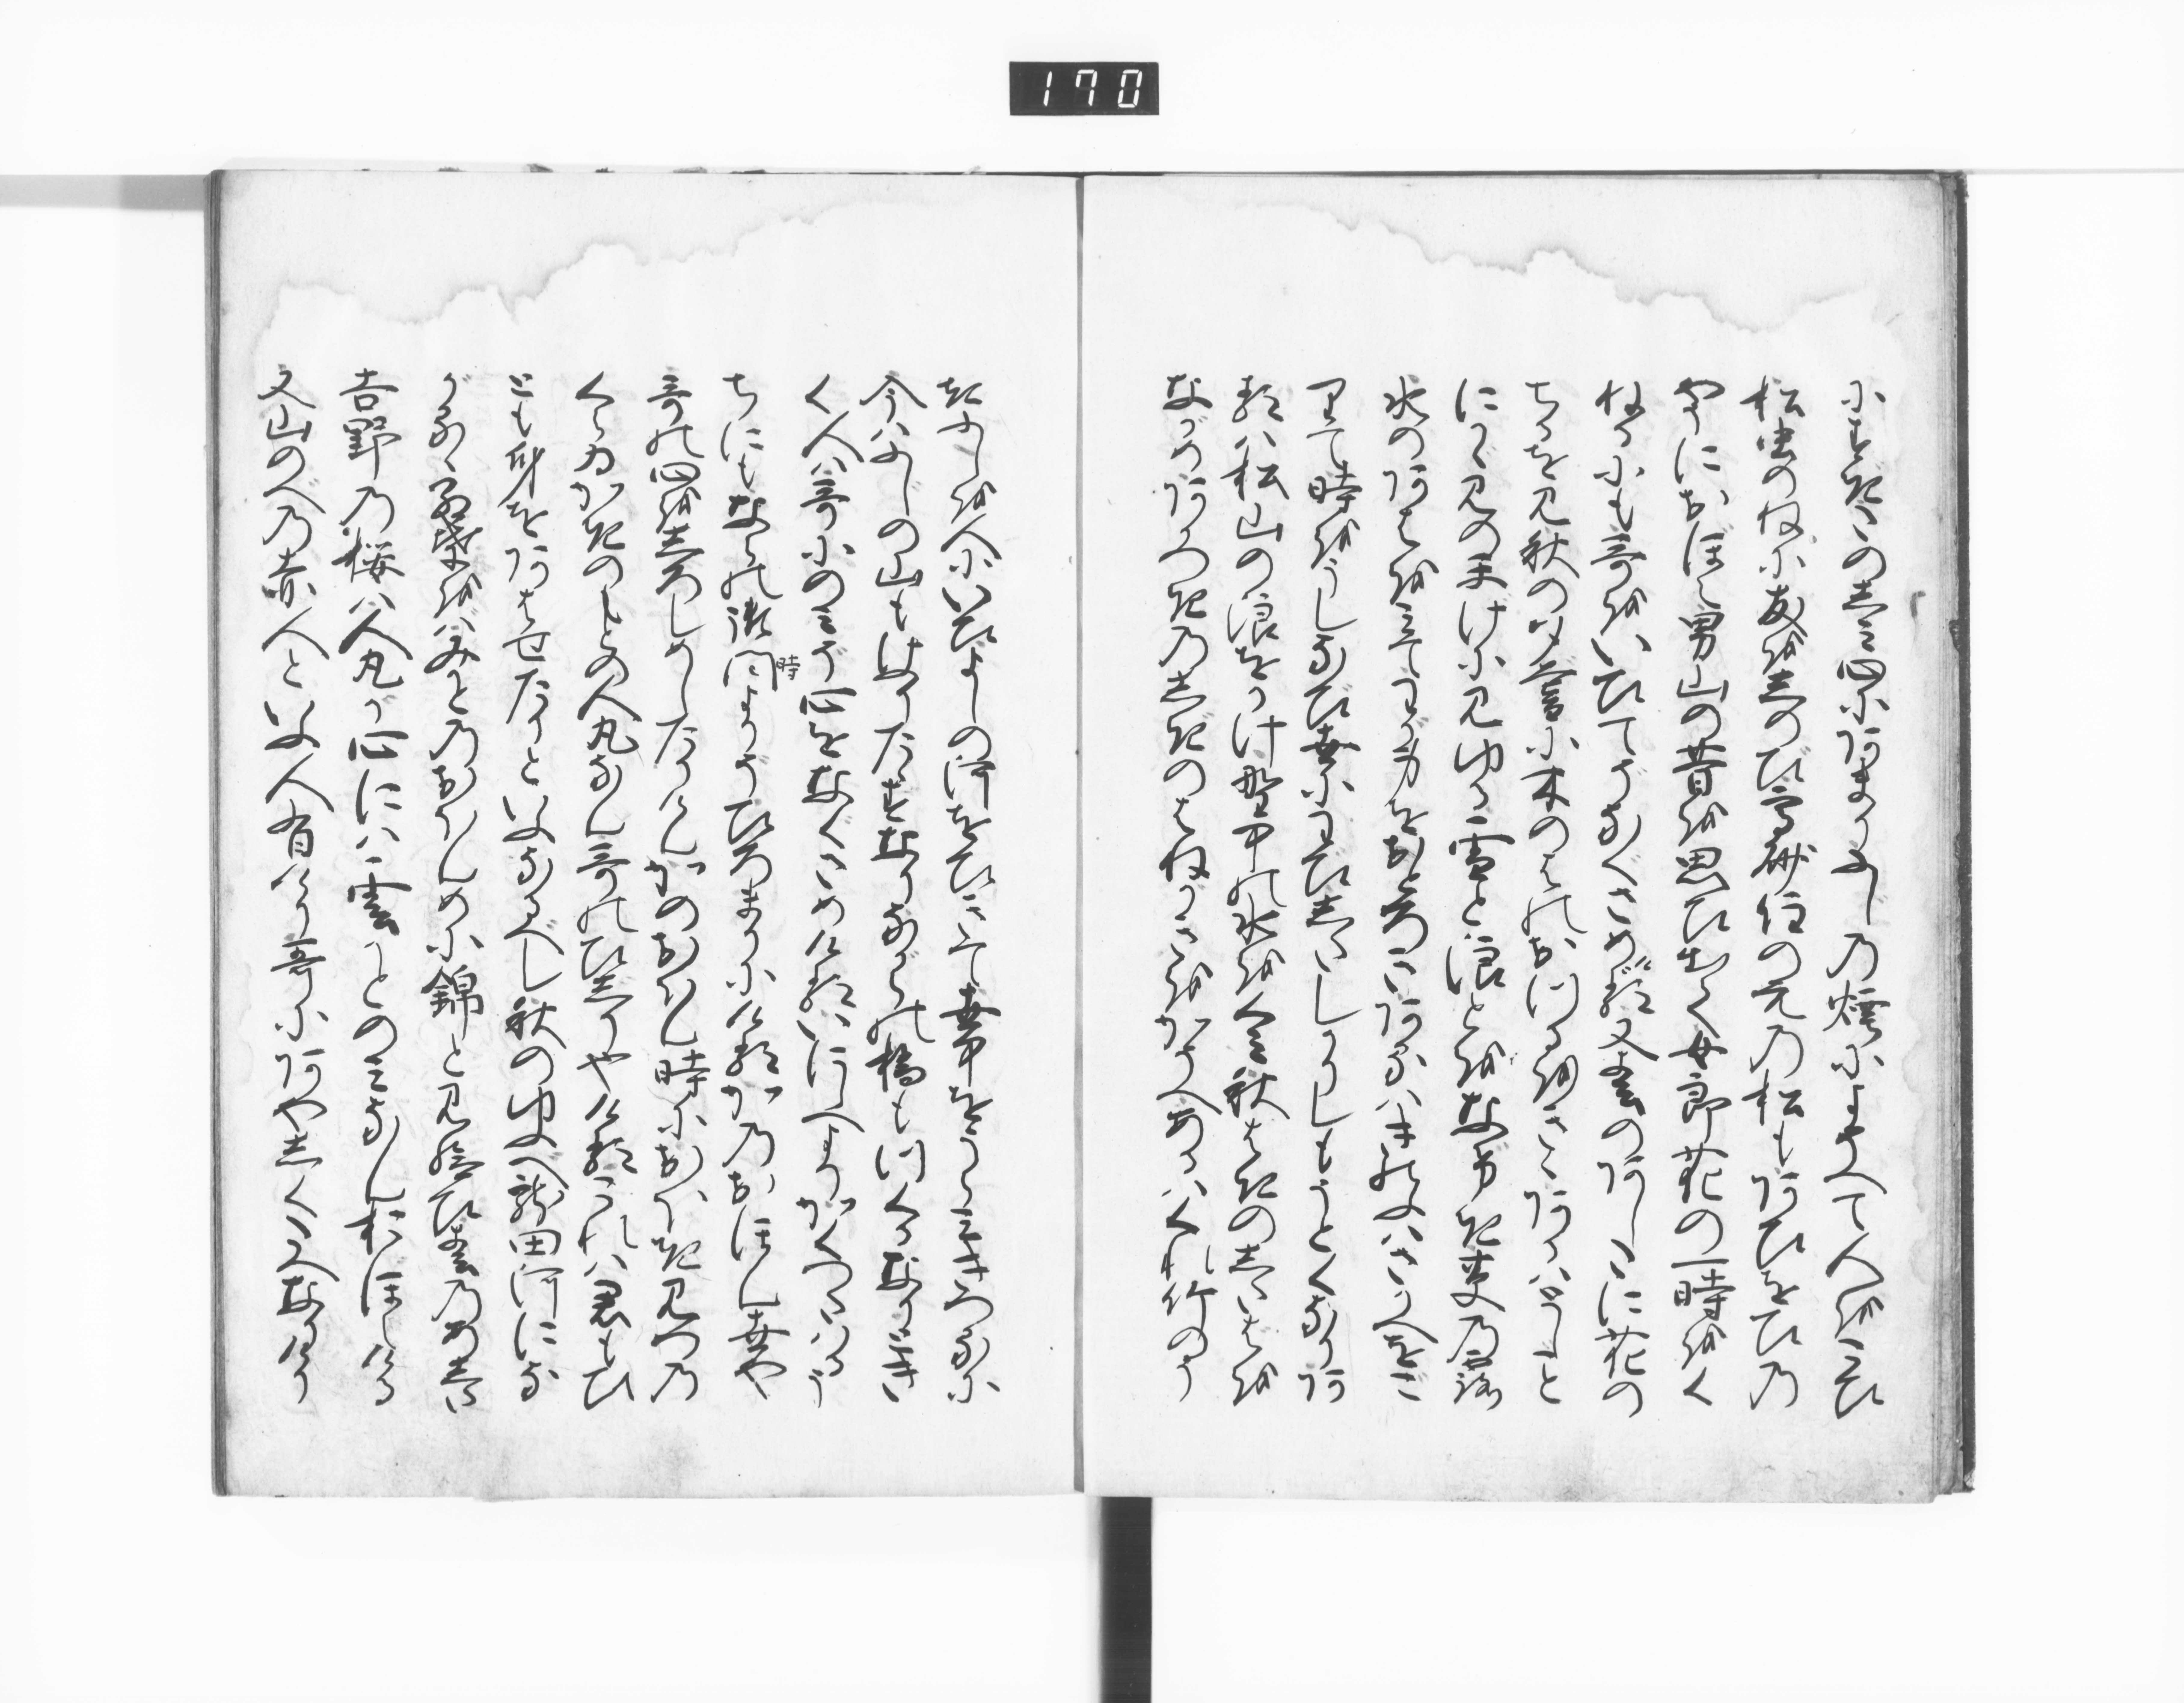 170
にたきこの志三思にあまりふしの煙によそへて人をこひ
松虫のねに友をしのび高砂住の元の松もあひをひの
やうにおほえ男山の昔を思ひ出て女郎花の一時をく
ねるにも哥をいひてぞなぐさめける又春のあしたに花の
ちるを見秋の夕暮に木のはのおつるをきゝあるはとしこと
にかゝ見のまけに見ゆる雪と浪とをなけき草の露
水のあはを三てわか身をおとろきあるはきのふはさかえをご
りて時をうしなひ世にわひしたしかりしもうとくなりあ
るは松山の浪をかけ野中の水をくみ秋はきのしたはを
なかめあかつきのしきのはねかきをかそへあるはくれ竹のう
きふしを人にいひよしの河をひきて世中をうらみきつるに
今はふしの山も煙たゝすなりなからの橋もつくるなりときく
く人は哥にのみそ心をなくさめけるいにしへよりかくつたはるう
ちにもならの御時よりそひろまりにけるかのおほん世や
哥の心をしろしめしたりけんかのおほん時におほき見つの
くらゐかきのもとの人丸なん哥のひしりや也けるこれは君もひ
とも身をあはせたりといふなるへし秋のゆふへ龍田河にな
かるゝ紅葉をはみかとのおほんめに錦と見給ひ春のあした
吉野の桜は人丸か心には雲かとのみなんおほえける
又山のへの赤人といふ人有けり哥にあやしくたへなりけり
時